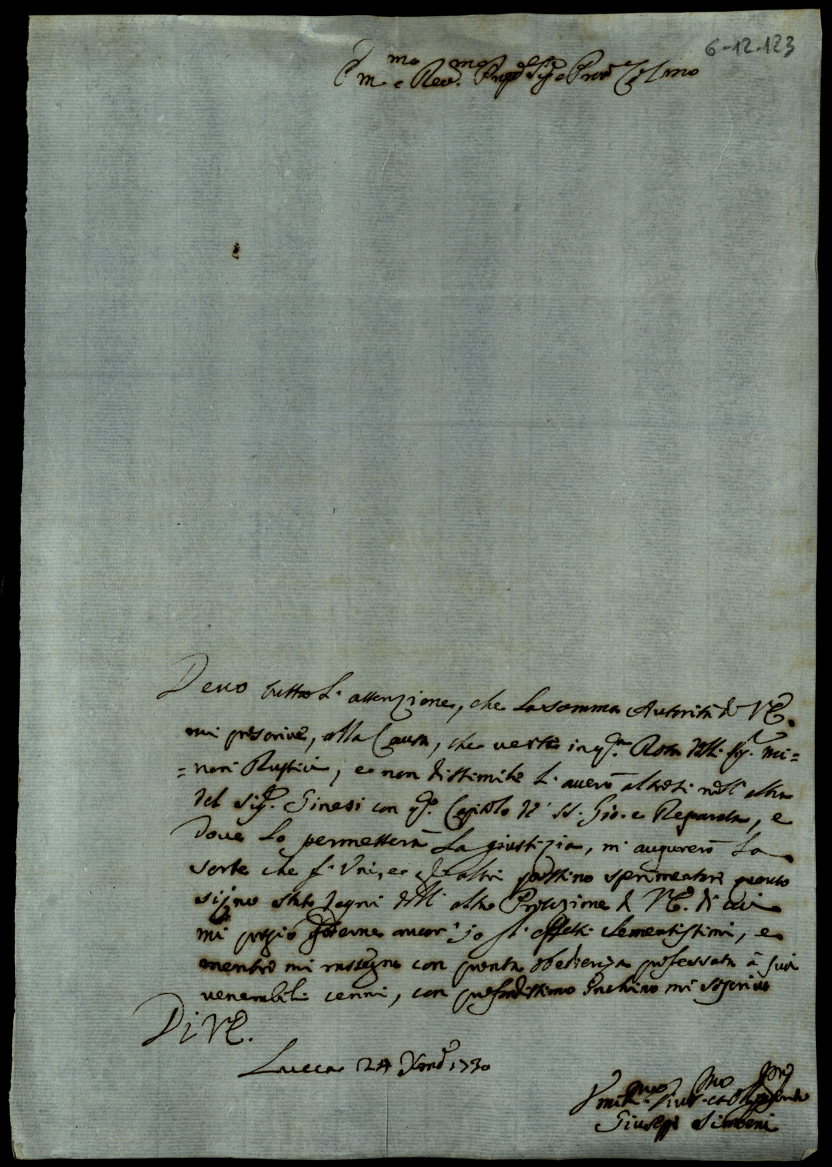 6-12-123
Em.mo e Rev.mo Pnpe Sig.e e Pron Col.mo
Devo tutta l'attenzione, che la somma Autorità di VE.
mi prescrive, alla Causa, che verte in q.ta Rota delli sig. mi=
=nori Rustici, e non dissimile l'averò altresì nell'altra
del sig.r Ginesi con q.to Capitolo de' SS. Gio. e Reparata, e
dove lo permetterà la giustizia, mi augurerò la
sorte che gl'uni, e gl'altri possino sperimentare quanto
siano stati degni dell'alta Protezione di VE. di cui
mi pregio goderne ancor'io gl'effetti clementissimi, e
mentre mi rassegno con pronta obedienza professata à suoi
venerabili cenni, con profondissimo Inchino mi soscrivo
Di VE.
Lucca 24 Xmbre 1730
Umil.mo Div.mo ed Obb
Giuseppe Simboni